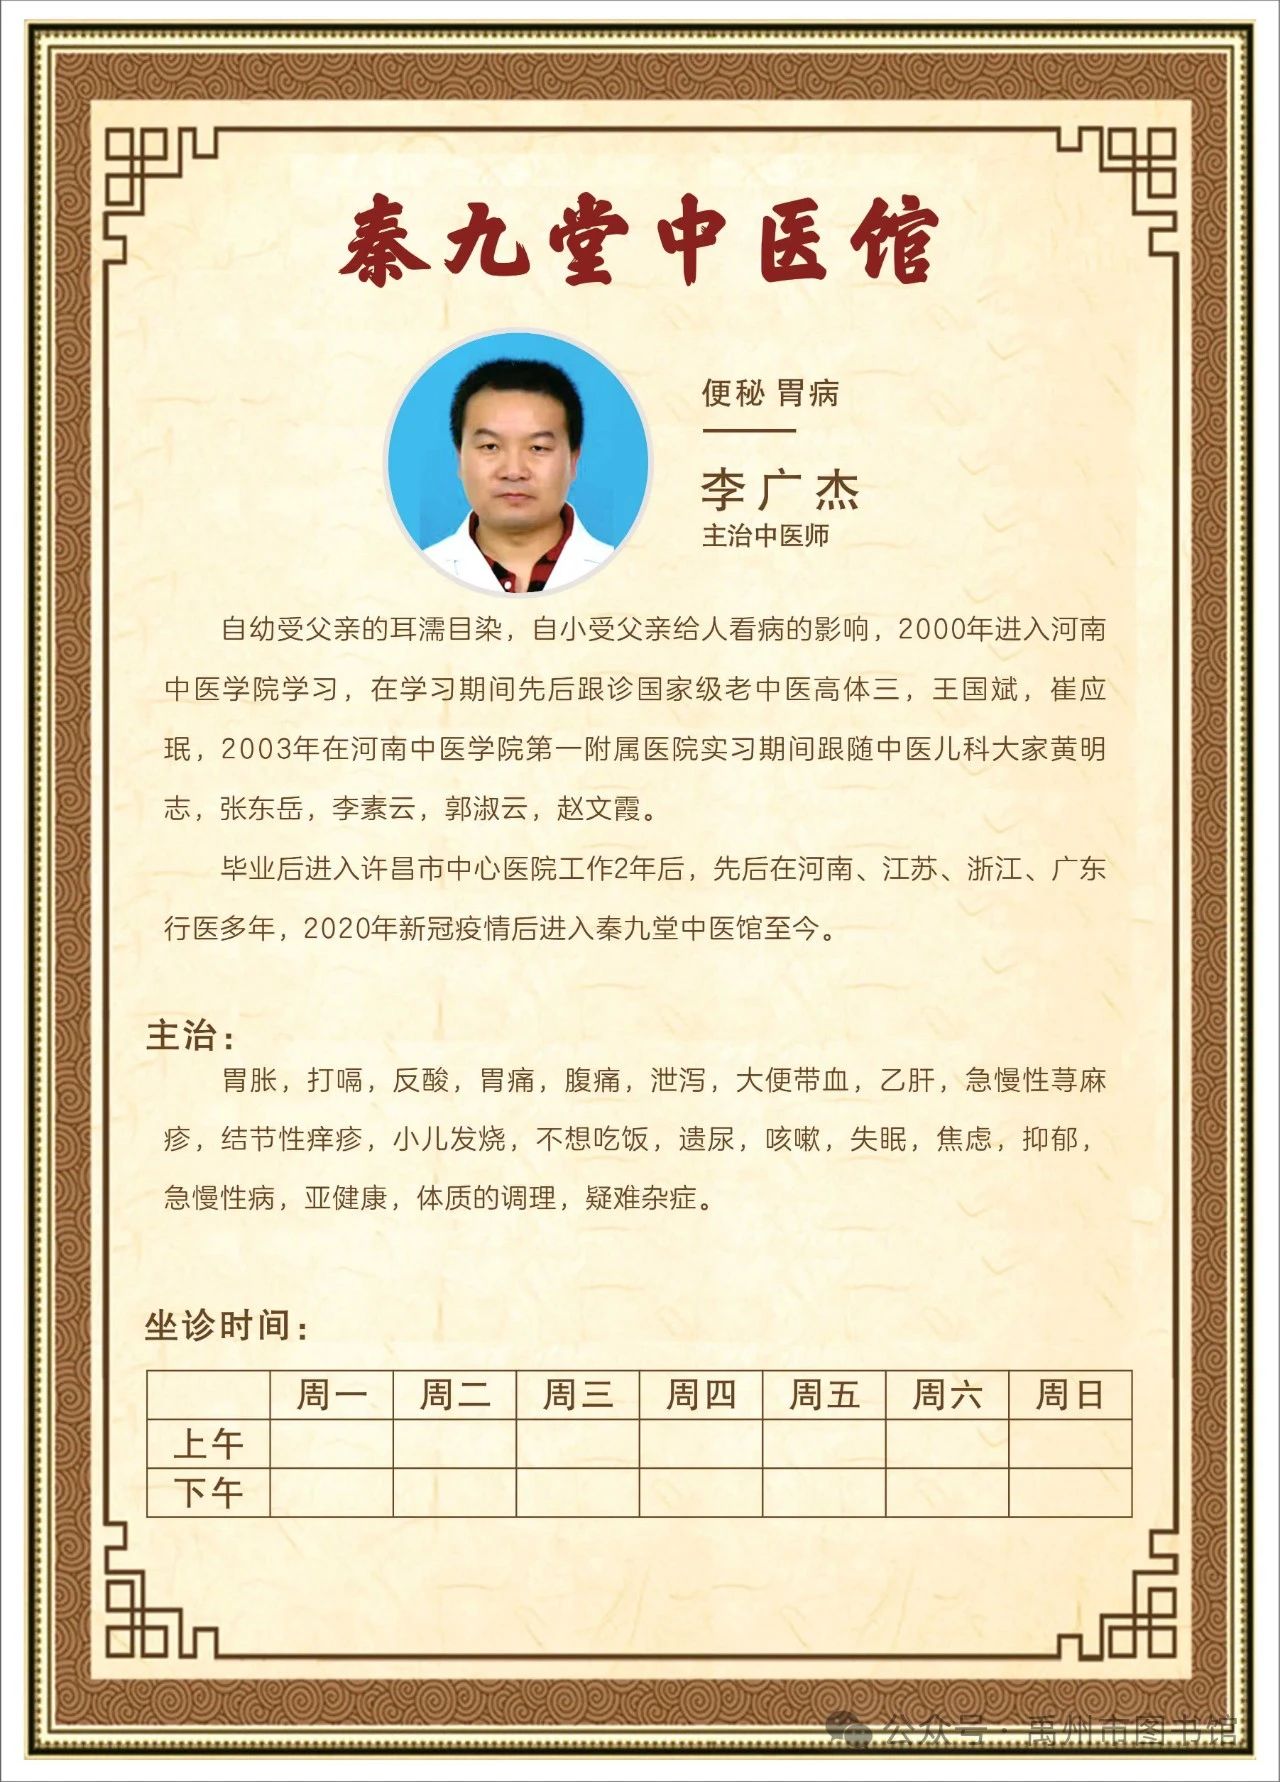 秦九堂中医馆
便秘 胃病
李广杰
主治中医师
自幼受父亲的耳濡目染，自小受父亲给人看病的影响，2000年进入河南
中医学院学习，在学习期间先后跟诊国家级老中医高体三，王国斌，崔应
珉，2003年在河南中医学院第一附属医院实习期间跟随中医儿科大家黄明
志，张东岳，李素云，郭淑云，赵文霞。
毕业后进入许昌市中心医院工作2年后，先后在河南、江苏、浙江、广东
行医多年，2020年新冠疫情后进入秦九堂中医馆至今。
主治：
胃胀，打嗝，反酸，胃痛，腹痛，泄泻，大便带血，乙肝，急慢性荨麻
疹，结节性痒疹，小儿发烧，不想吃饭，遗尿，咳嗽，失眠，焦虑，抑郁，
急慢性病，亚健康，体质的调理，疑难杂症。
坐诊时间：
周一 周二 周三 周四 周五 周六 周日
上午
下午
公众号 · 禹州市图书馆